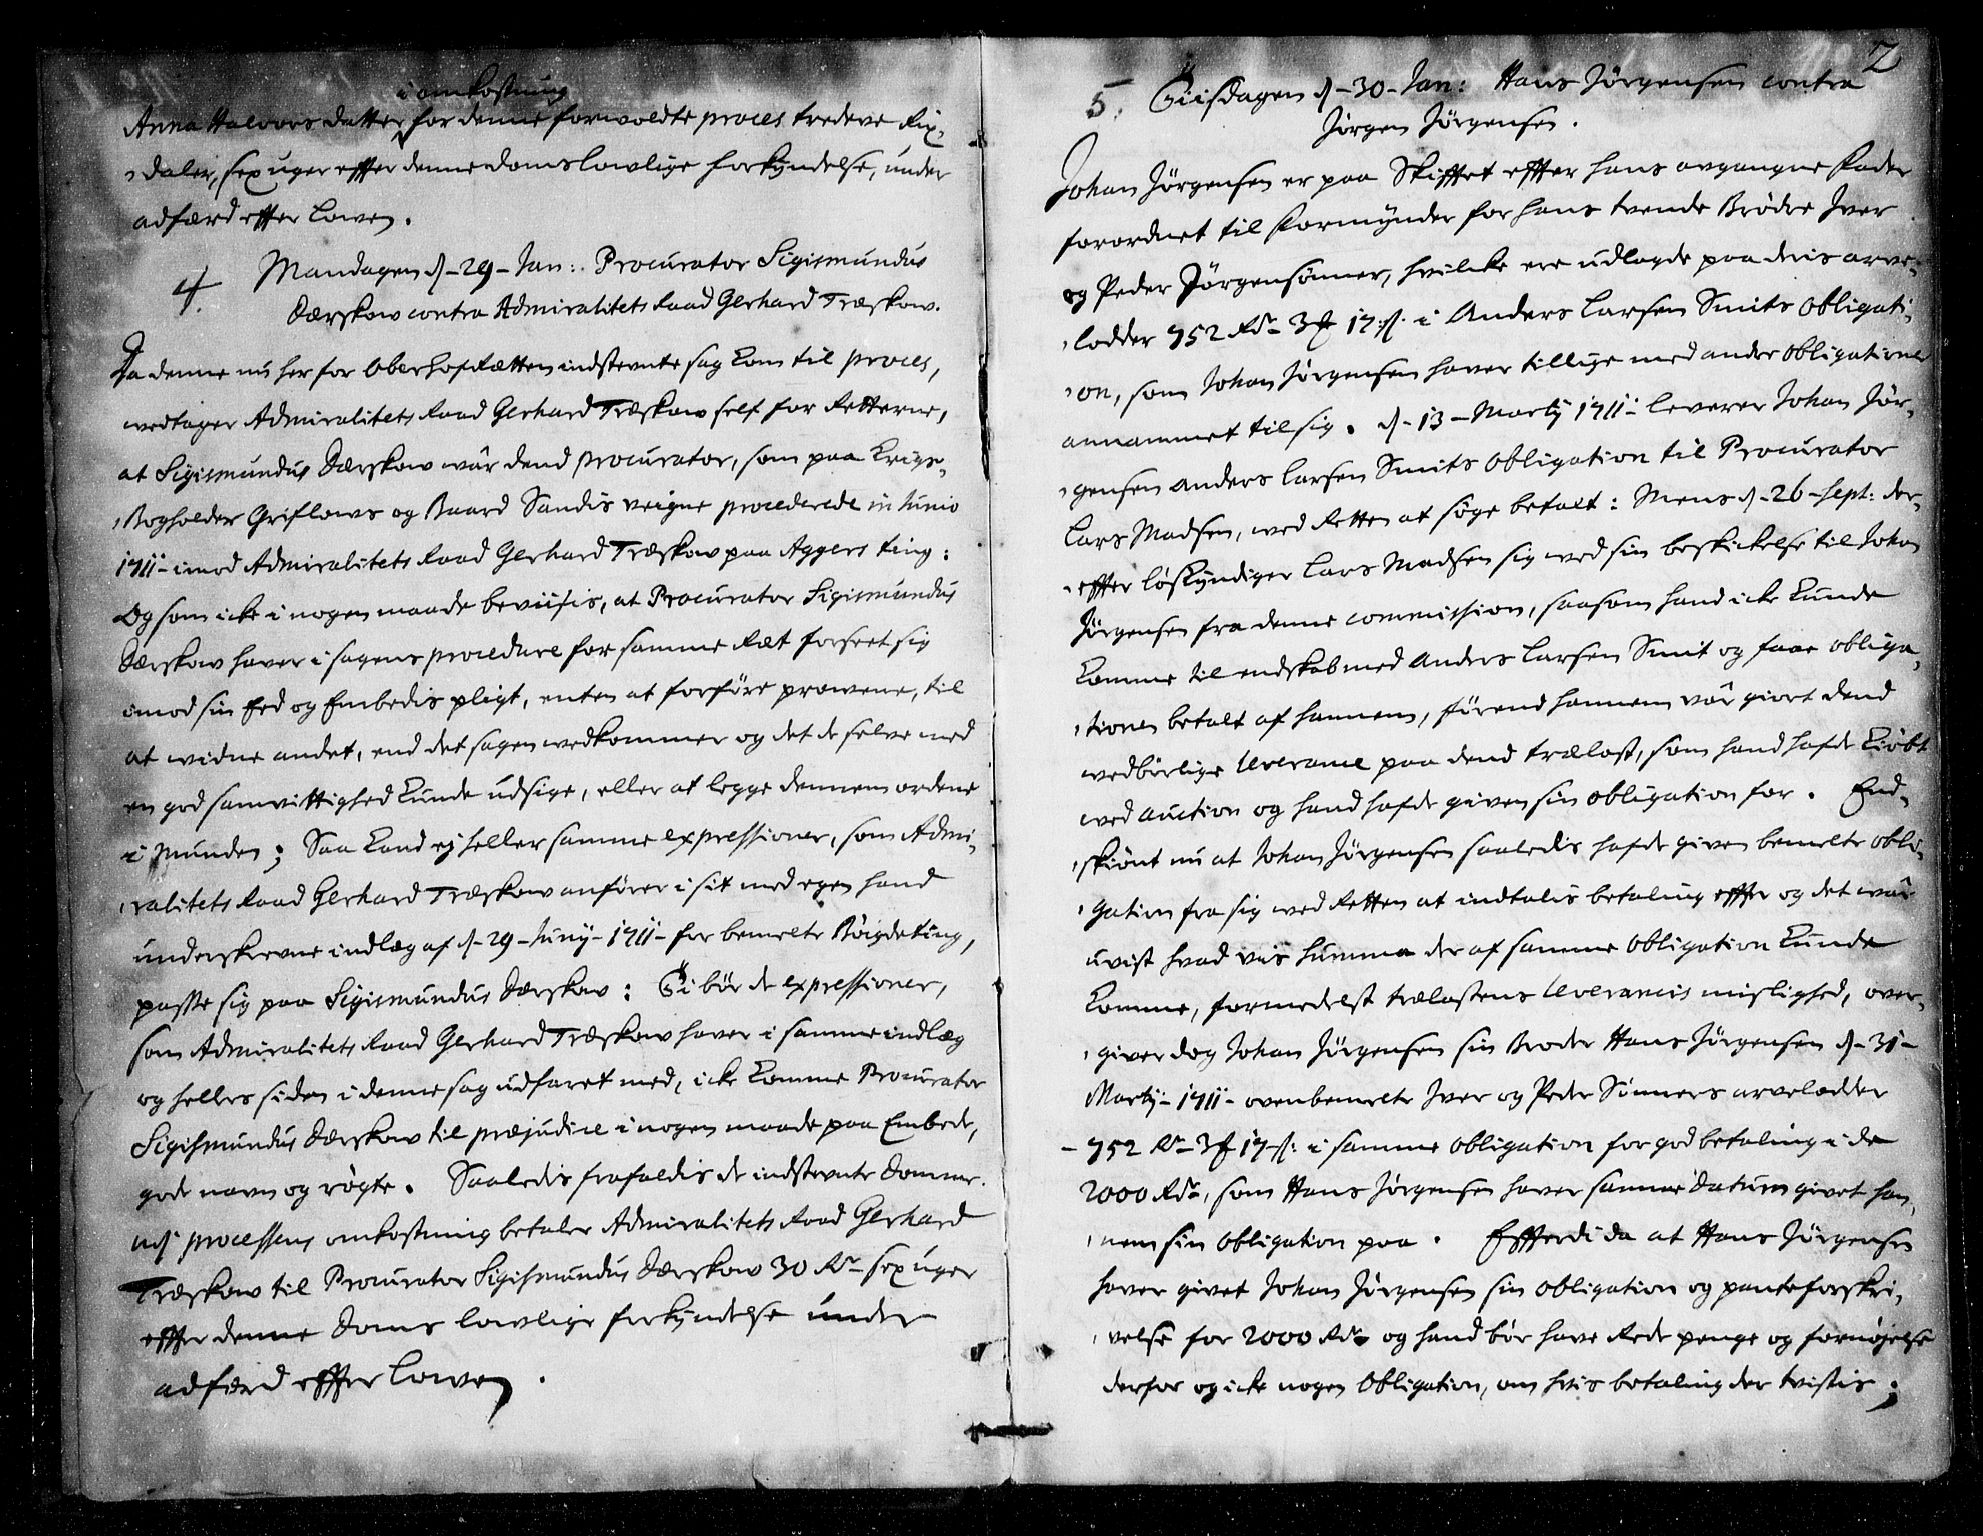 i omkostning
Anna Halvors datter for denne forvoldte proces tredeve Rix,
daler, sex uger effter denne doms lowlige forkyndelse, under
adfærd effter Lowen.
4. Mandagen d-29-Jan: Procurator Sigismundus
Dærskow contra Admiralitets Raad Gerhard Træskow.
Da denne nu her for Oberhofretten indstevnte sag kom til proces,
vedtager Admiralitets Raad Gerhard Træskow self for Retterne,
at Sigismundus Dærskow vár dend procurator, som paa Krigs-
Bogholder Griflows og Baard Sandis veigne procederede in Junio
1711- imod Admiralitets Raad Gerhard Træskow paa Aggers ting:
Og som icke i nogen maade beviisis, at Procurator Sigismundus
Dærskow haver i sagens procedure for samme Ræt forseet sig
imod sin Eed og Embedis pligt, enten at forföre prowene, til
at widne andet, end det sagen wedkommer og det de selve med
en god samvittighed kunde udsige, eller at legge dennem ordene
i Munden; Saa kand ej heller samme expressioner, som Admi,
ralitets Raad Gerhard Træskow anfører i sit med egen haand
underskrevne indlæg af d-29-Juny-1711- for bemelte Böigdeting,
passe sig paa Sigismundus Dærskow: Ti bör de expressioner,
som Admiralitets Raad Gerhard Træskow haver i samme indlæg
og hellers siden i denne sag udfaret med, icke komme Procurator
Sigismundus Dærskow til præjudice i nogen maade paa Embede,
gode navn og rögte. Saaledis frafaldis de indstevnte Domme.
Udj processens omkostning betaler Admiralitets Raad Gerhard
Træskow til Procurator Sigismundus Dærskow 30 Rdr sex uger
effter denne Doms lowlige forkyndelse under
adfærd effter Lowen.
2
5. Tiisdagen d-30-Jan: Hans Jörgensen contra
Jörgen Jörgensen.
Johan Jörgensen er paa Skifftet effter hans avgangne Fader
forordnet til Formynder for hans tvende Brödre Iver
og Peder Jörgensönner, hvilcke ere udlagde paa deris arve-
lodder 752 Rdr 3 17 s. i Anders Larsen Smits Obligati,
on, som Johan Jörgensen haver tillige med andre obligationer
annammet til sig. d-13-Marty 1711- leverer Johan Jör,
gensen Anders Larsen Smits Obligation til Procurator
Lars Madsen, wed Retten at söge betalt: Mens d-26-Sept: der-
effter löskyndiger Lars Madsen sig wed sin beskickelse til Johan
Jörgensen fra denne commission, saasom hand icke kunde
komme til endskab med Anders Larsen Smit og faae obliga,
tionen betalt af hannem, förend hannem vár giort dend
wedbörlige leverance paa dend trælast, som hand hafde kiöbt
wed auction og hand hafde given sin obligation for. End,
skiönt nu at Johan Jörgensen saaledis hafde given bemelte obli,
gation fra sig wed Retten at indtalis betaling effter og det wár
uvist hvad vis Summa der af samme Obligation kunde
komme, formedelst trælastens leverancis mislighed, over-
giver dog Johan Jörgensen sin Broder Hans Jörgensen d-31-
Marty-1711- ovenbemelte Iver og Peder Sönners arvelodder
752 Rdr 3 17 s: i samme Obligation for god betaling i de
2000 Rdr, som Hans Jörgensen haver samme datum givet han,
nem sin Obligation paa. Effterdi da at Hans Jörgensen
haver givet Johan Jörgensen sin Obligation og panteforskri,
velse for 2000 Rdr og hand bör have Rede penge og fornöjelse
derfor og icke nogen Obligation, om hvis betaling der tvistis;